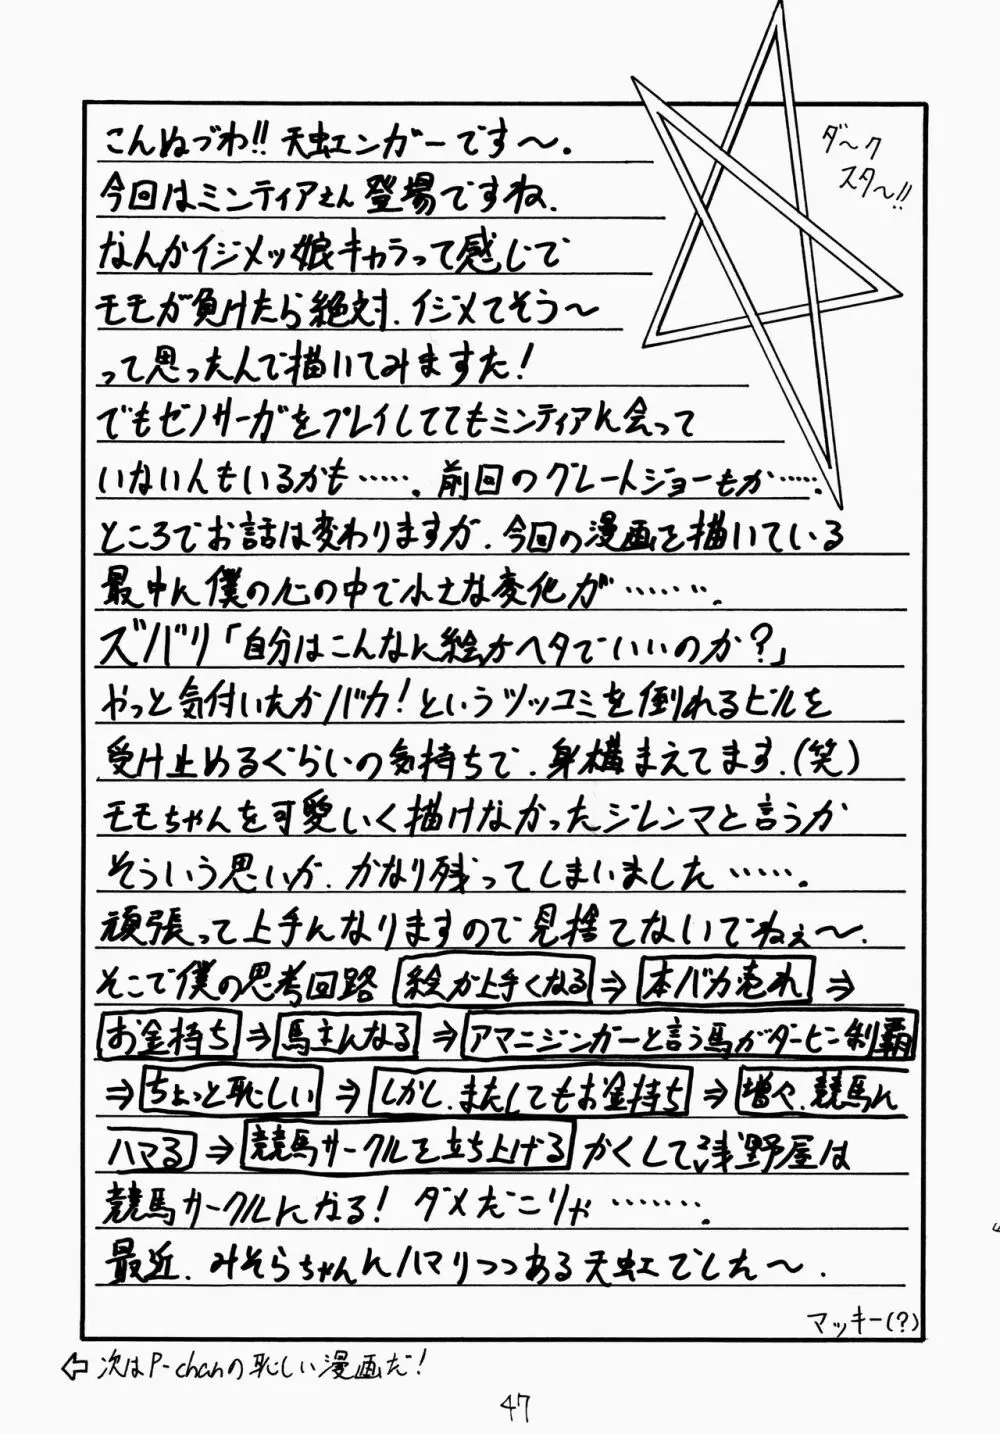 こんぬづわ!! 天虹エンガーです〜.
今回はミンティアさん登場ですね.
なんかイジメッ娘キャラって感じで
モモが負けたら絶対.イジメてそう〜
って思ったんで描いてみますた!
でもゼノサーガをプレイしててもミンティアに会って
いない人もいるかも……. 前回のグレートジョーもか…….
ところでお話は変わりますが.今回の漫画を描いている
最中に僕の心の中で小さな変化が………
ズバリ「自分はこんなに絵がヘタでいいのか?」
やっと気付いたかバカ!というツッコミを倒れるビルを
受け止めるぐらいの気持ちで.身構まえてます.(笑)
モモちゃんを可愛いく描けなかったジレンマと言うか
そういう思いが.かなり残ってしまいました…….
頑張って上手になりますので見捨てないでねぇ〜.
そこで僕の思考回路 絵が上手くなる ⇒ 本バカ売れ ⇒
お金持ち ⇒ 馬主になる ⇒ アマニジンガーと言う馬がダービー制覇
⇒ ちょっと恥しい ⇒ しかし.またしてもお金持ち ⇒ 増々.競馬に
ハマる ⇒ 競馬サークルを立ち上げる かくして浅野屋は
競馬サークルになる! ダメだこりゃ…….
最近.みそらちゃんにハマりつつある天虹でした〜.
マッキー(?)
ダ〜ク
スタ〜!!
⇦ 次はP-chanの恥しい漫画だ!
47